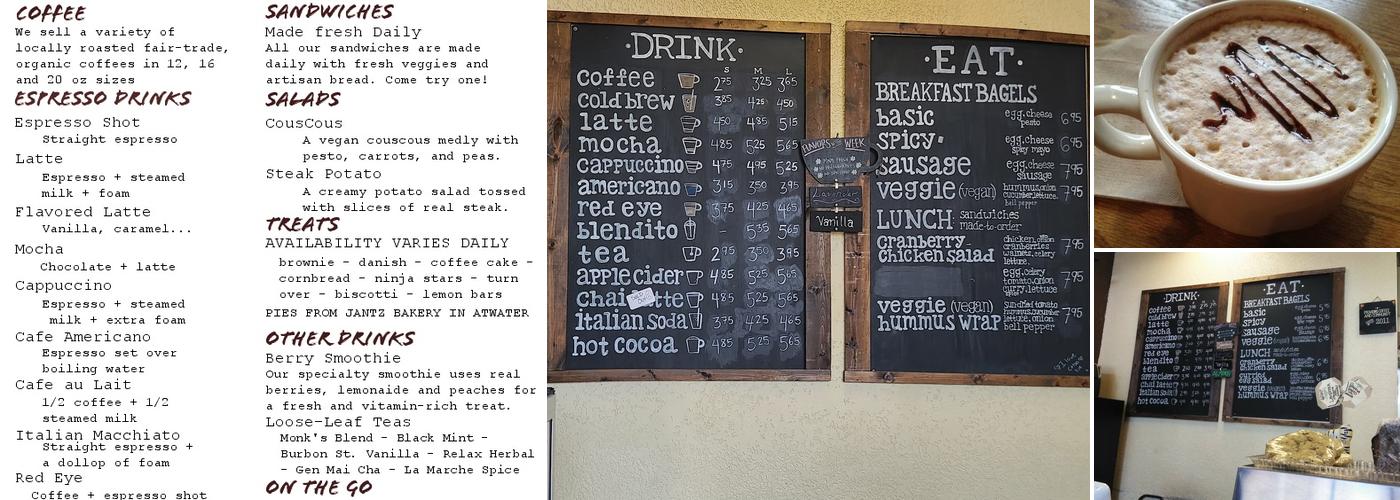 COFFEE
We sell a variety of
locally roasted fair-trade,
organic coffees in 12, 16
and 20 oz sizes
ESPRESSO DRINKS
Espresso Shot
Straight espresso
Latte
Espresso + steamed
milk + foam
Flavored Latte
Vanilla, caramel...
Mocha
Chocolate + latte
Cappuccino
Espresso + steamed
milk + extra foam
Cafe Americano
Espresso set over
boiling water
Cafe au Lait
1/2 coffee + 1/2
steamed milk
Italian Macchiato
Straight espresso +
a dollop of foam
Red Eye
Coffee + espresso shot
SANDWICHES
Made fresh Daily
All our sandwiches are made
daily with fresh veggies and
artisan bread. Come try one!
SALADS
CousCous
A vegan couscous medly with
pesto, carrots, and peas.
Steak Potato
A creamy potato salad tossed
with slices of real steak.
TREATS
AVAILABILITY VARIES DAILY
brownie - danish - coffee cake -
cornbread - ninja stars - turn
over - biscotti - lemon bars
PIES FROM JANTZ BAKERY IN ATWATER
OTHER DRINKS
Berry Smoothie
Our specialty smoothie uses real
berries, lemonaide and peaches for
a fresh and vitamin-rich treat.
Loose-Leaf Teas
Monk's Blend - Black Mint -
Burbon St. Vanilla - Relax Herbal
- Gen Mai Cha - La Marche Spice
ON THE GO
·DRINK·
S M L
coffee 275 325 365
cold brew 385 425 450
latte 450 485 515
mocha 485 525 565
cappuccino 475 495 525
americano 315 350 395
red eye 375 425 465
blendito - 535 565
tea 295 350 395
apple cider 485 525 565
chai latte 485 525 565
italian soda 375 425 465
hot cocoa 485 525 565
FLAVORS OF THE WEEK
Lavender
Vanilla
·EAT·
BREAKFAST BAGELS
basic egg.cheese pesto 695
spicy· egg.cheese spicy mayo 695
sausage egg.cheese sausage 795
veggie (vegan) hummus.onion cucumber.lettuce. bell pepper 795
LUNCH· sandwiches made-to-order
cranberry chicken salad chicken.onion cranberries walnuts.celery lettuce. 795
egg.celery tomato.onion curry.lettuce 795
veggie (vegan) hummus wrap sundried tomato hummus.cucumber lettuce.onion bell pepper 795
·DRINK·
coffee
cold brew
latte
mocha
cappuccino
americano
red eye
blendito
tea
apple cider
chai latte
italian soda
hot cocoa
·EAT·
BREAKFAST BAGELS
basic
spicy
sausage
veggie
LUNCH
cranberry
chicken salad
curried
egg salad
veggie
hummus wrap
2011